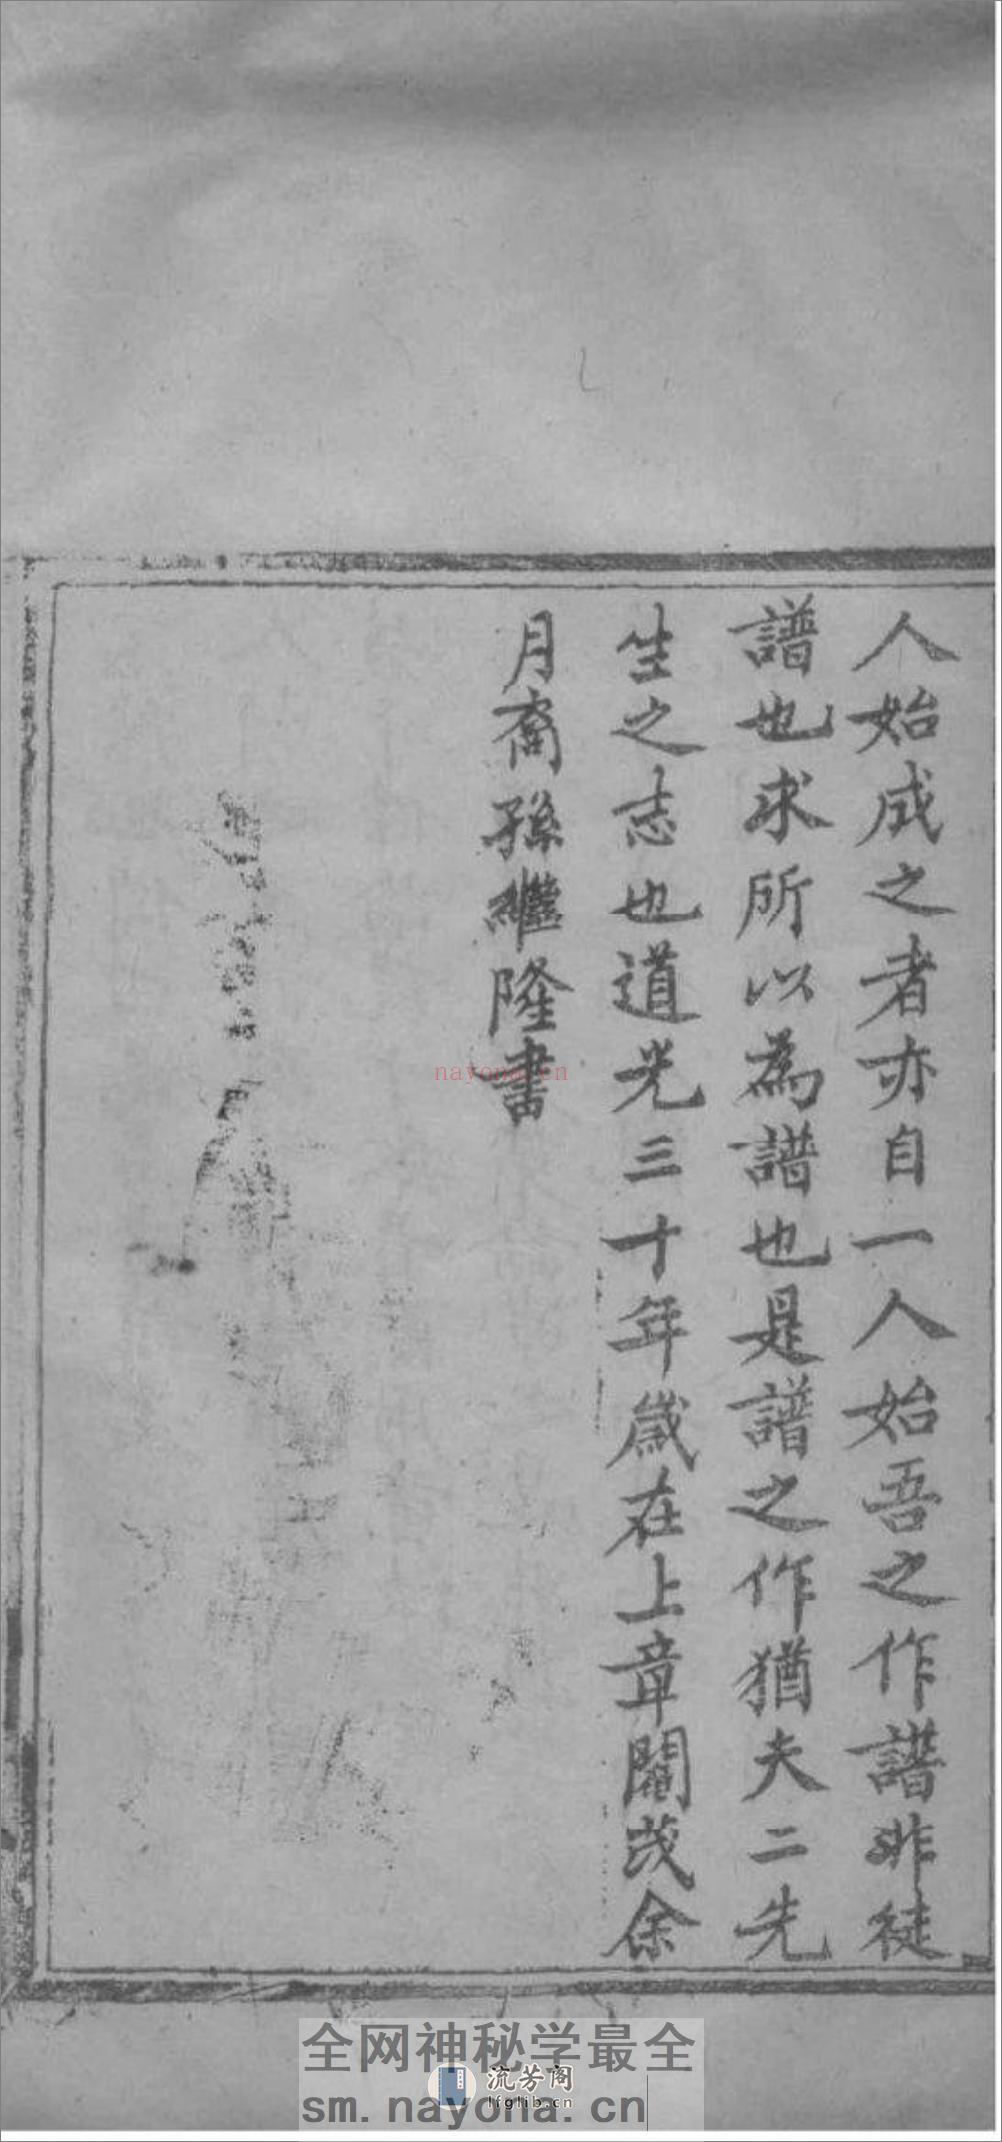 人始成之者亦自一人始吾之作譜非徒
譜也求所以為譜也是譜之作猶夫二先
生之志也道光三十年歲在上章閹茂余
月裔孫繼隆書
nayona.cn
全网神秘学最全
流芳阁
lfglib.cn
sm.nayona.cn